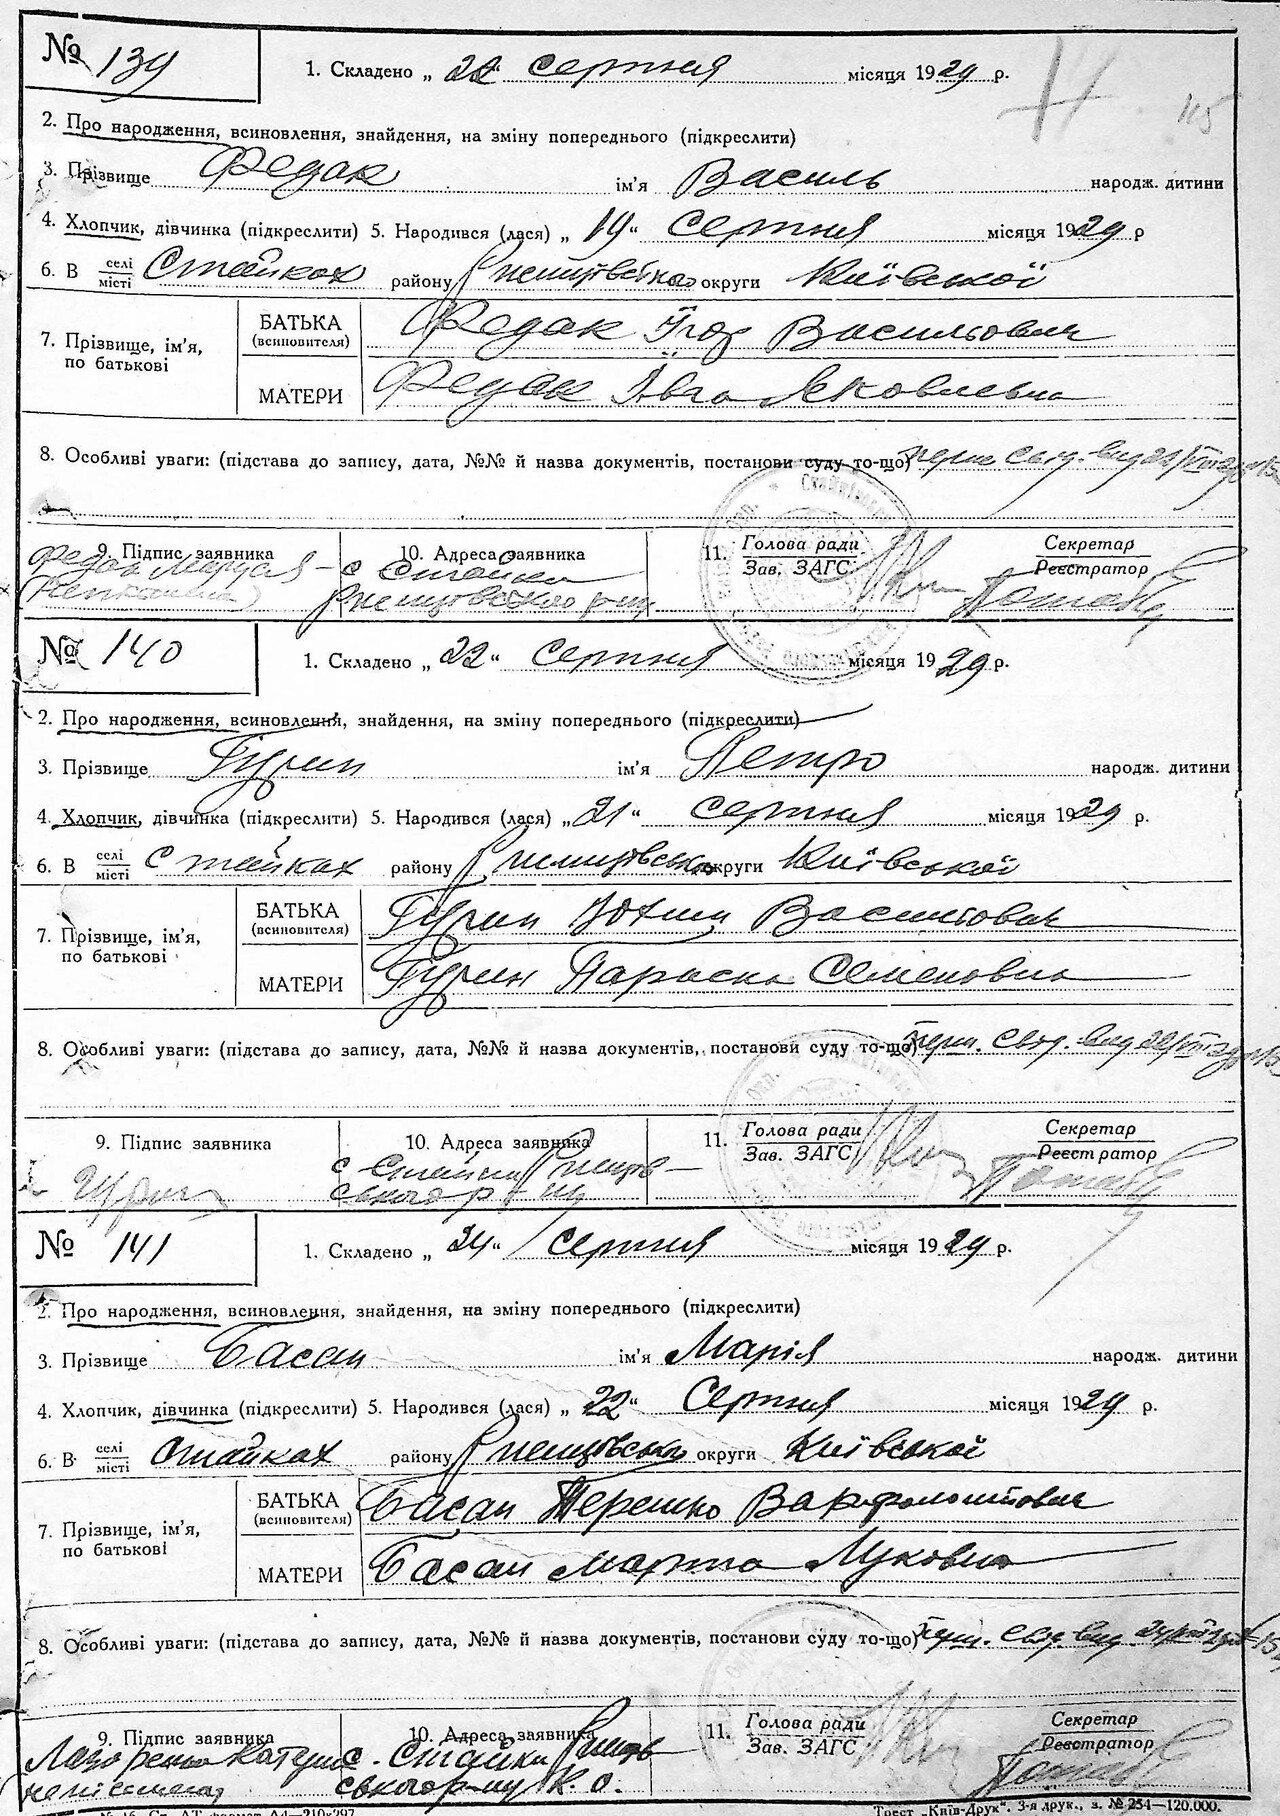 № 139 1. Складено „ 22 “ серпня місяця 1929 р.
115
2. Про народження, всиновлення, знайдення, на зміну попереднього (підкреслити)
3. Прізвище Федак ім'я Василь народж. дитини
4. Хлопчик, дівчинка (підкреслити) 5. Народився (лася) „ 19 “ серпня місяця 1929 р
6. В селі/місті Стайках району Ржищівсько округи Київської
7. Прізвище, ім'я, по батькові
БАТЬКА (всиновителя) Федак Ігор Васильович
МАТЕРИ Федак Ївга Яковлевна
8. Особливі уваги: (підстава до запису, дата, №№ й назва документів, постанови суду то-що)
9. Підпис заявника 10. Адреса заявника 11. Голова ради Секретар
Зав. ЗАГС Реєстратор
Федак Маруся с Стайки
Ржищівського р-ну
№ 140 1. Складено „ 22 “ серпня місяця 1929 р.
2. Про народження, всиновлення, знайдення, на зміну попереднього (підкреслити)
3. Прізвище Гурин ім'я Петро народж. дитини
4. Хлопчик, дівчинка (підкреслити) 5. Народився (лася) „ 21 “ серпня місяця 1929 р.
6. В селі/місті Стайках району Ржищівсько округи Київської
7. Прізвище, ім'я, по батькові
БАТЬКА (всиновителя) Гурин Юхим
МАТЕРИ Гурин Параска Семеновна
8. Особливі уваги: (підстава до запису, дата, №№ й назва документів, постанови суду то-що)
9. Підпис заявника 10. Адреса заявника 11. Голова ради Секретар
Зав. ЗАГС Реєстратор
Гурин с Стайки Ржищів-
ського р-ну
№ 141 1. Складено „ 24 “ серпня місяця 1929 р.
2. Про народження, всиновлення, знайдення, на зміну попереднього (підкреслити)
3. Прізвище Басан ім'я Марія народж. дитини
4. Хлопчик, дівчинка (підкреслити) 5. Народився (лася) „ 22 “ Серпня місяця 1929 р.
6. В селі/місті Стайках району Ржищівсько округи Київської
7. Прізвище, ім'я, по батькові
БАТЬКА (всиновителя) Басан Терешко Варфоломійович
МАТЕРИ Басан Марта Луковна
8. Особливі уваги: (підстава до запису, дата, №№ й назва документів, постанови суду то-що)
9. Підпис заявника 10. Адреса заявника 11. Голова ради Секретар
Зав. ЗАГС Реєстратор
Лазоренко Катерина с. Стайки Ржищів-
неписмена ського р-ну К. О.
Трест „Київ-Друк“. 3-я друк., з. № 254—120.000.